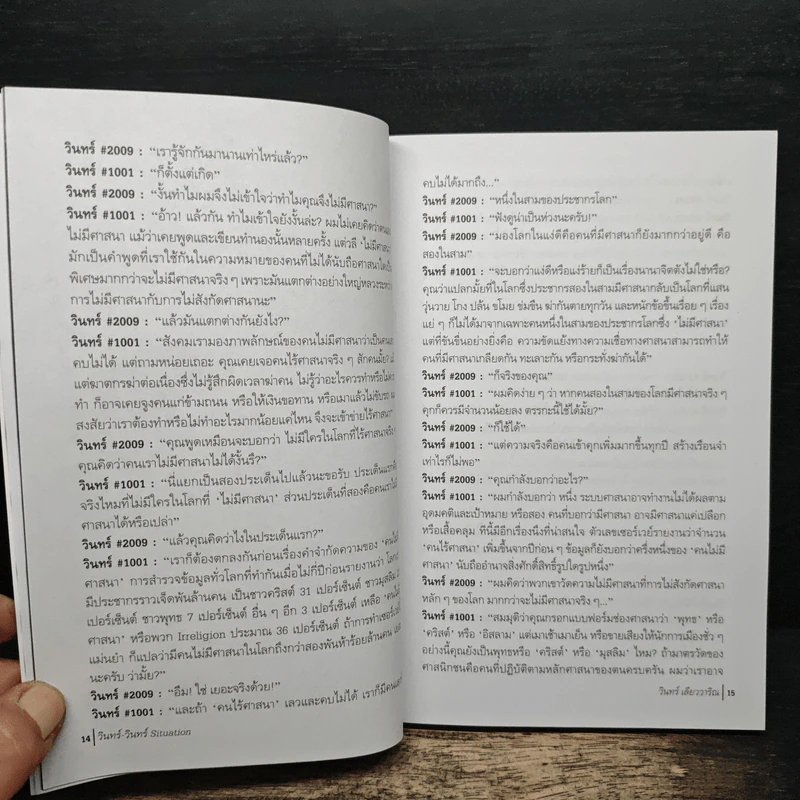 วินทร์ #2009 : “เรารู้จักกันมานานเท่าไหร่แล้ว?”
วินทร์ #1001 : “ก็ตั้งแต่เกิด”
วินทร์ #2009 : “งั้นทำไมผมจึงไม่เข้าใจว่าทำไมคุณจึงไม่มีศาสนา?”
วินทร์ #1001 : “อ้าว! แล้วกัน ทำไมเข้าใจยังงั้นล่ะ? ผมไม่เคยคิดว่าตนเอง
ไม่มีศาสนา แม้ว่าเคยพูดและเขียนทำนองนั้นหลายครั้ง แต่วลี ‘ไม่มีศาสนา’
มักเป็นคำพูดที่เราใช้กันในความหมายของคนที่ไม่ได้นับถือศาสนาใดเป็น
พิเศษมากกว่าจะไม่มีศาสนาจริง ๆ เพราะมันแตกต่างอย่างใหญ่หลวงระหว่าง
การไม่มีศาสนากับการไม่สังกัดศาสนานะ”
วินทร์ #2009 : “แล้วมันแตกต่างกันยังไง?”
วินทร์ #1001 : “สังคมเรามองภาพลักษณ์ของคนไม่มีศาสนาว่าเป็นคน
คบไม่ได้ แต่ถามหน่อยเถอะ คุณเคยเจอคนไร้ศาสนาจริง ๆ สักคนมั้ย?
แต่ฆาตกรฆ่าต่อเนื่องซึ่งไม่รู้สึกผิดเวลาฆ่าคน ไม่รู้ว่าอะไรควรทำหรือไม่
ทำ ก็อาจเคยจูงคนแก่ข้ามถนน หรือให้เงินขอทาน หรือเมาแล้วไม่ขับรถ
สงสัยว่าเราต้องทำหรือไม่ทำอะไรมากน้อยแค่ไหน จึงจะเข้าข่ายไร้ศาสนา”
วินทร์ #2009 : “คุณพูดเหมือนจะบอกว่า ไม่มีใครในโลกที่ไร้ศาสนาจริง
คุณคิดว่าคนเราไม่มีศาสนาไม่ได้งั้นรึ?”
วินทร์ #1001 : “นี่แยกเป็นสองประเด็นไปแล้วนะขอรับ ประเด็นแรกคือ
จริงไหมที่ไม่มีใครในโลกที่ ‘ไม่มีศาสนา’ ส่วนประเด็นที่สองคือคนเราไม่มี
ศาสนาได้หรือเปล่า”
วินทร์ #2009 : “แล้วคุณคิดว่าไงในประเด็นแรก?”
วินทร์ #1001 : “เราก็ต้องตกลงกันก่อนเรื่องคำจำกัดความของ ‘คนไม่มี
ศาสนา’ การสำรวจข้อมูลทั่วโลกที่ทำกันเมื่อไม่กี่ปีก่อนรายงานว่า โลก
มีประชากรราวเจ็ดพันล้านคน เป็นชาวคริสต์ 31 เปอร์เซ็นต์ ชาวมุสลิม
เปอร์เซ็นต์ ชาวพุทธ 7 เปอร์เซ็นต์ อื่น ๆ อีก 3 เปอร์เซ็นต์ เหลือ ‘คนไม่มี
ศาสนา’ หรือพวก Irreligion ประมาณ 36 เปอร์เซ็นต์ ถ้าการทำเซอร์เวย์
แม่นยำ ก็แปลว่ามีคนไม่มีศาสนาในโลกถึงกว่าสองพันห้าร้อยล้านคน
นะครับ ว่ามั้ย?”
วินทร์ #2009 : “อืม! ใช่ เยอะจริงด้วย!”
วินทร์ #1001 : “และถ้า ‘คนไร้ศาสนา’ เลวและคบไม่ได้ เราก็มีคนเลว
14 | วินทร์-วินทร์ Situation
คบไม่ได้มากถึง...”
วินทร์ #2009 : “หนึ่งในสามของประชากรโลก”
วินทร์ #1001 : “ฟังดูน่าเป็นห่วงนะครับ!”
วินทร์ #2009 : “มองโลกในแง่ดีคือคนที่มีศาสนาก็ยังมากกว่าอยู่ดี คือ
สองในสาม”
วินทร์ #1001 : “จะบอกว่าแง่ดีหรือแง่ร้ายก็เป็นเรื่องนานาจิตตังไม่ใช่หรือ?
คุณว่าแปลกมั้ยที่ในโลกซึ่งประชากรสองในสามมีศาสนากลับเป็นโลกที่แสน
วุ่นวาย โกง ปล้น ขโมย ข่มขืน ฆ่ากันตายทุกวัน และหนักข้อขึ้นเรื่อย ๆ เรื่อง
แย่ ๆ ก็ไม่ได้มาจากเฉพาะคนหนึ่งในสามของประชากรโลกซึ่ง ‘ไม่มีศาสนา’
แต่ที่ขันขื่นอย่างยิ่งคือ ความขัดแย้งทางความเชื่อทางศาสนาสามารถทำให้
คนที่มีศาสนาเกลียดกัน ทะเลาะกัน หรือกระทั่งฆ่ากันได้”
วินทร์ #2009 : “ก็จริงของคุณ”
วินทร์ #1001 : “ผมคิดง่าย ๆ ว่า หากคนสองในสามของโลกมีศาสนาจริง ๆ
คุกก็ควรมีจำนวนน้อยลง ตรรกะนี้ใช้ได้มั้ย?”
วินทร์ #2009 : “ก็ใช้ได้”
วินทร์ #1001 : “แต่ความจริงคือคนเข้าคุกเพิ่มมากขึ้นทุกปี สร้างเรือนจำ
เท่าไรก็ไม่พอ”
วินทร์ #2009 : “คุณกำลังบอกว่าอะไร?”
วินทร์ #1001 : “ผมกำลังบอกว่า หนึ่ง ระบบศาสนาอาจทำงานไม่ได้ผลตาม
อุดมคติและเป้าหมาย หรือสอง คนที่บอกว่ามีศาสนา อาจมีศาสนาแค่เปลือก
หรือเสื้อคลุม ทีนี้มีอีกเรื่องนึงที่น่าสนใจ ตัวเลขเซอร์เวย์รายงานว่าจำนวน
‘คนไร้ศาสนา’ เพิ่มขึ้นจากปีก่อน ๆ ข้อมูลก็ยังบอกว่าครึ่งหนึ่งของ ‘คนไม่มี
ศาสนา’ นับถืออำนาจสิ่งศักดิ์สิทธิ์รูปใดรูปหนึ่ง”
วินทร์ #2009 : “ผมคิดว่าพวกเขาวัดความไม่มีศาสนาที่การไม่สังกัดศาสนา
หลัก ๆ ของโลก มากกว่าจะไม่มีศาสนาจริง ๆ...”
วินทร์ #1001 : “สมมุติว่าคุณกรอกแบบฟอร์มช่องศาสนาว่า ‘พุทธ’ หรือ
‘คริสต์’ หรือ ‘อิสลาม’ แต่เมาเช้าเมาเย็น หรือขายเสียงให้นักการเมืองชั่ว ๆ
อย่างนี้คุณยังเป็นพุทธหรือ ‘คริสต์’ หรือ ‘มุสลิม’ ไหม? ถ้ามาตรวัดของ
ศาสนิกชนคือคนที่ปฏิบัติตามหลักศาสนาของตนครบครัน ผมว่าเราอาจ
วินทร์ เลียววาริณ | 15